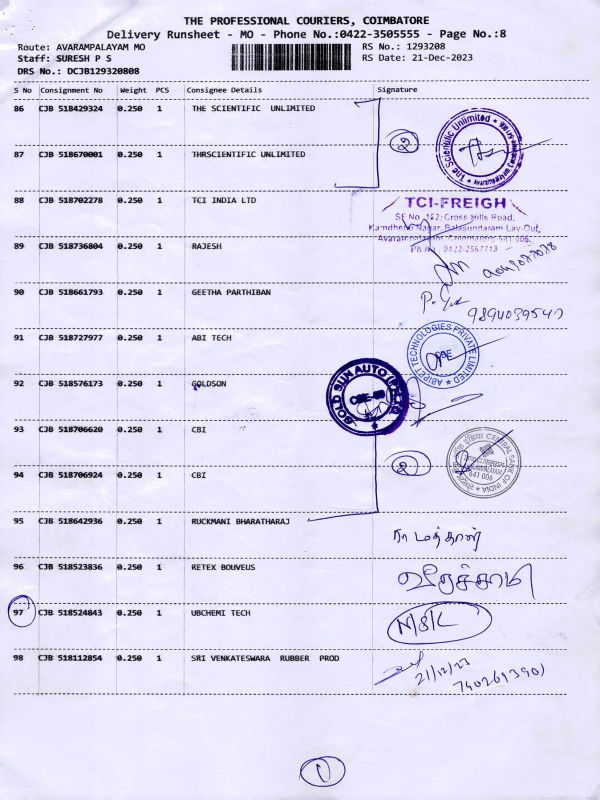 THE PROFESSIONAL COURIERS, COIMBATORE
Delivery Runsheet - MO - Phone No.:0422-3505555 - Page No.:8
Route: AVARAMPALAYAM MO RS No.: 1293208
Staff: SURESH P S RS Date: 21-Dec-2023
DRS No.: DCJB129320808
S No Consignment No Weight PCS Consignee Details Signature
86 CJB 518429324 0.250 1 THE SCIENTIFIC UNLIMITED
2
The Scientific Unlimited
87 CJB 518670001 0.250 1 THRSCIENTIFIC UNLIMITED
88 CJB 518702278 0.250 1 TCI INDIA LTD
TCI-FREIGH
SF No. 162, Cross Mills Road,
Kamdhenu Nagar, Balasundaram Lay-Out,
Avarampalayam, Coimbatore-641 006.
Ph No. 0422-2567713
89 CJB 518736804 0.250 1 RAJESH
90 CJB 518661793 0.250 1 GEETHA PARTHIBAN
91 CJB 518727977 0.250 1 ABI TECH
ABIPET TECHNOLOGIES PRIVATE LIMITED
92 CJB 518576173 0.250 1 GOLDSON
GOLD SUN AUTO
93 CJB 518706620 0.250 1 CBI
CENTRAL BANK OF INDIA
641 006
94 CJB 518706924 0.250 1 CBI
2
95 CJB 518642936 0.250 1 RUCKMANI BHARATHARAJ
96 CJB 523836 0.250 1 RETEX BOUVEUS
வீரச்சாமி
97 CJB 518524843 0.250 1 UBCHEMI TECH
N/S/L
98 CJB 518112854 0.250 1 SRI VENKATESWARA RUBBER PROD
21/12/23
7402613901
1